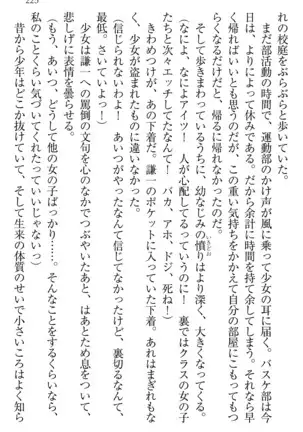 225
れの校庭をぶらぶらと歩いていた。
まだ部活動の時間で、運動部のかけ声が風に乗って少女の耳に届く。バスケ部は今
日は、よりによって休みである。だから余計に時間を持て余していた。それなら早
く帰ればいいとも思うのだが、この重い気持ちをかかえて自分の部屋にこもっても暗
くなるだけだと、帰るに帰れなかったのだ。
そして歩きまわっているうちに、幼なじみの憤りはより深く、大きくなってくる。
（なによ、なによアイツ！　人が心配してるっていうのに！　裏ではクラスの女の子
たちと次々エッチしてたなんて！　バカ、アホ、ドジ、死ね！）
きわめつけが、あの下着だ。謙一のポケットに入っていた下着。あれはまぎれもな
く、少女が盗まれたものに違いなかった。
（信じられない！　あいつがやったなんて信じてなかったけど、裏切るなんて……
最低。さいていっ！）
少女は謙一への罵倒の文句を心なかでつぶやいたあと、はたと立ち止まってため息をついて、
悲しげに表情を曇らせる。
（もう、あいつ、どうして他の女の子ばっかり……。そんなことをするくらいなら、
私のことくらい気づいてくれたっていいじゃないっ）
昔から少年はどこか抜けていて、そして生来の体質のせいで小さいころはよく知ら